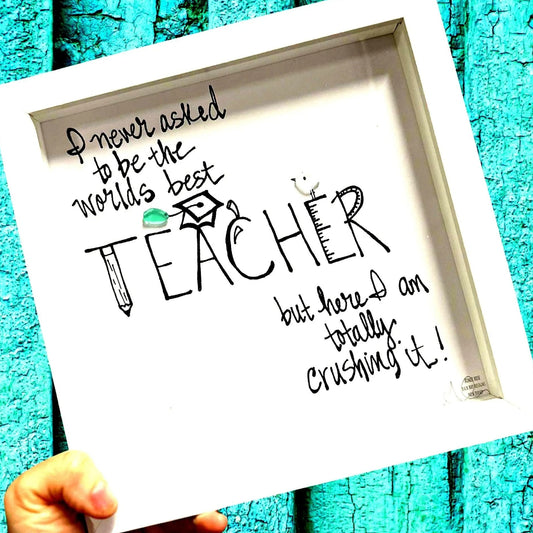 I never asked
to be the
worlds best
TEACHER
but here I am
totally
crushing it!